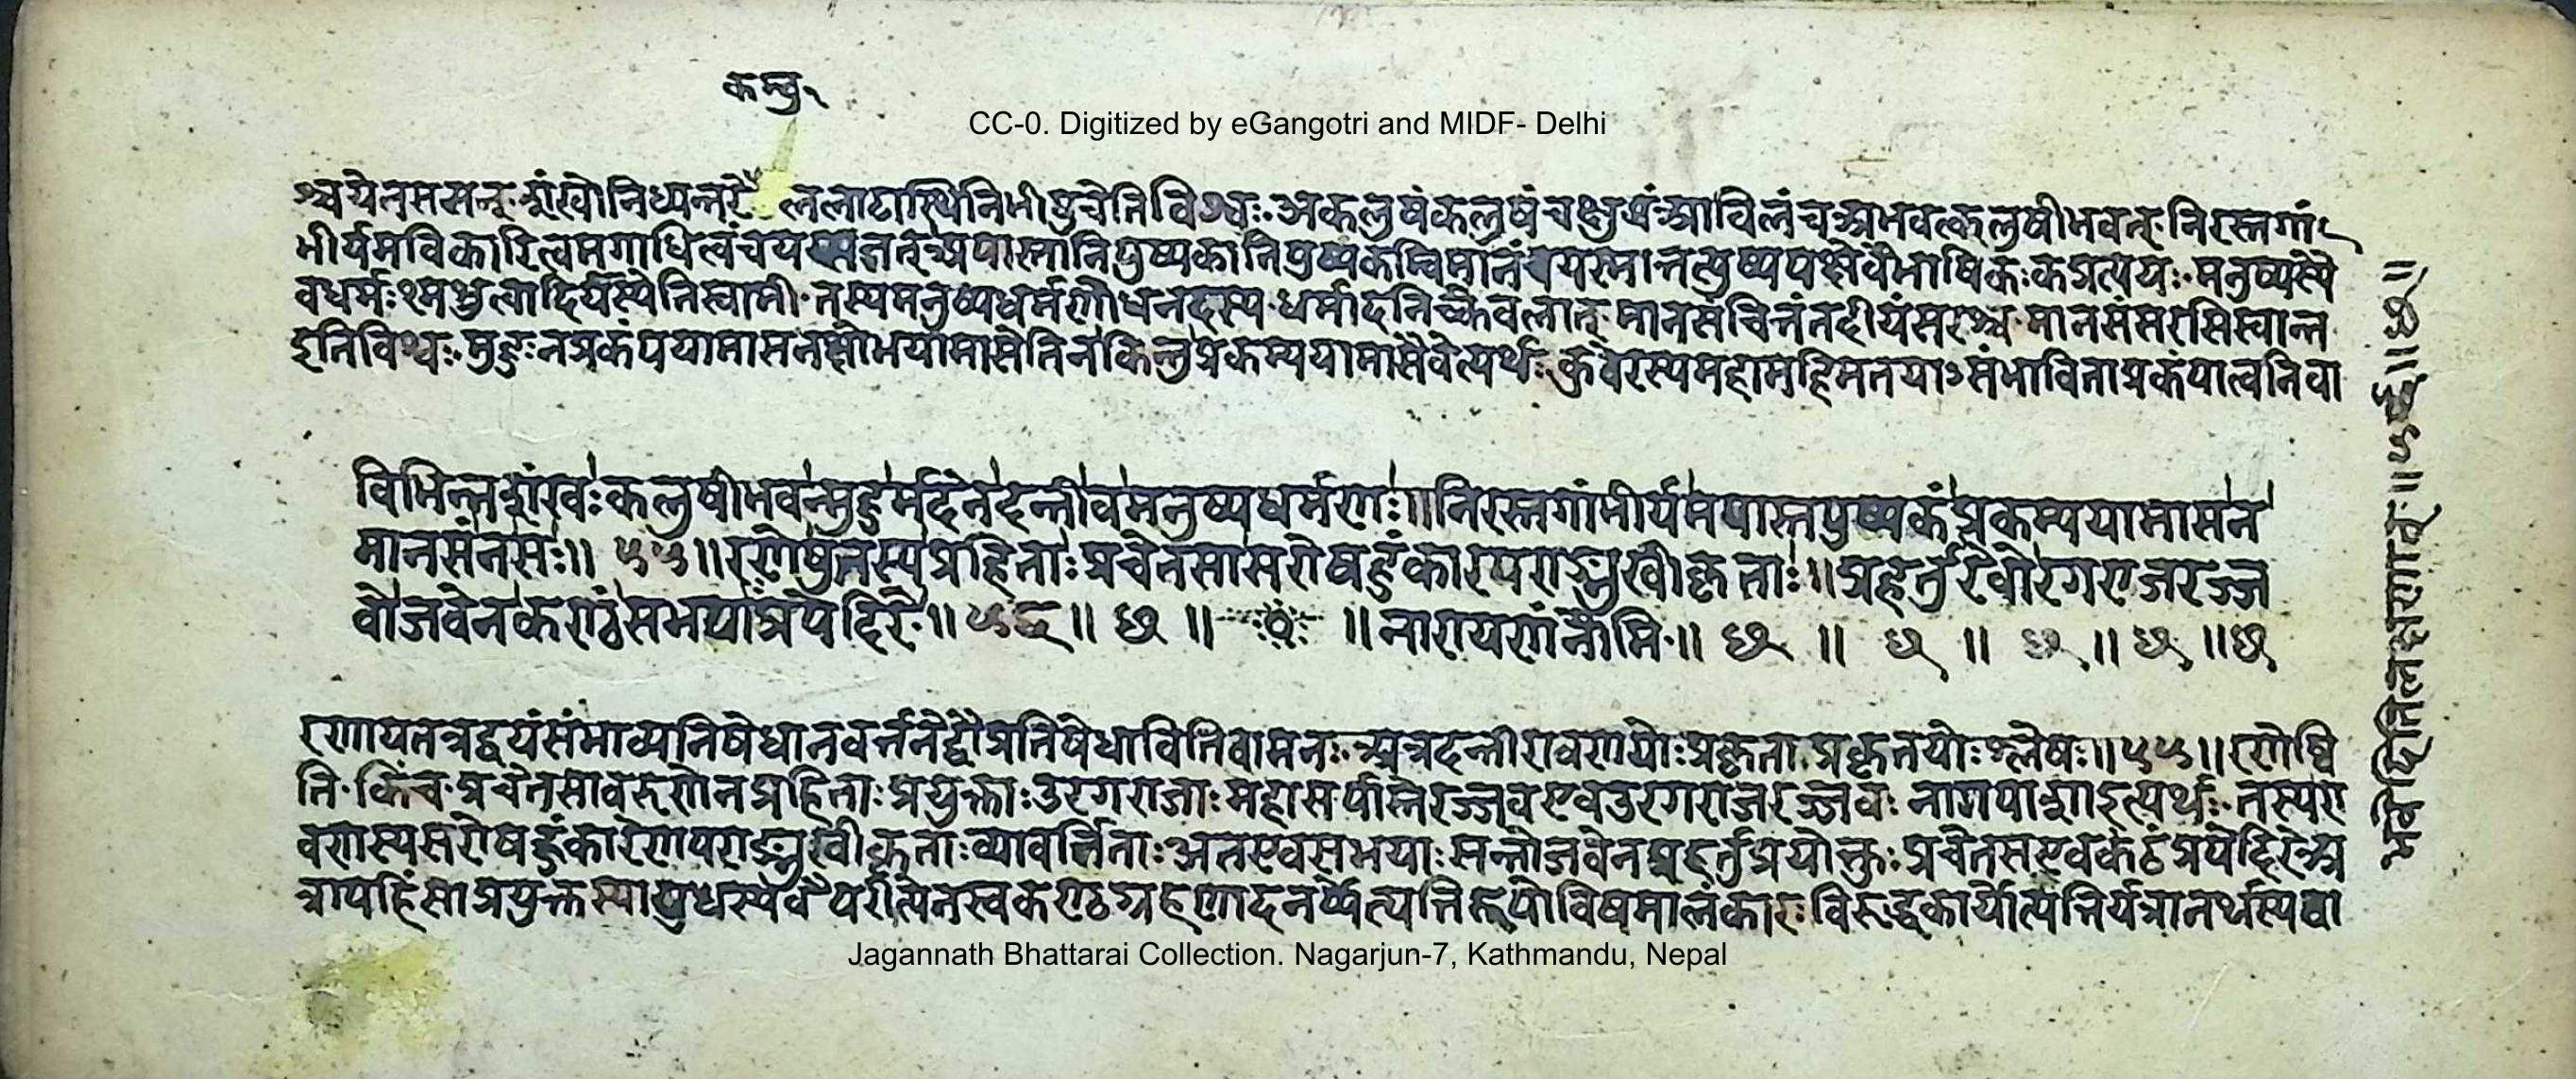 कम्बु१
CC-0. Digitized by eGangotri and MIDF- Delhi
श्चयेनससन् शंखोनिध्यन्तरे ललाटास्थिनिभीप्रुचेतिविश्वः अकलुषंकलुषंचक्षुप्रंआविलंचअभवत्कलुषीभवत् निरस्तगां
भीर्यमविकारित्वमगाधित्वंचयस्य तत् अपास्तानिपुष्पकानिपुष्पकम्विमानंचयस्मात्तत्पुष्पपक्षेवैभाषिकःकप्रत्ययः मनुष्यस्यै
वधर्मःश्मश्रुलादिर्यस्येतिस्वामी तस्यमनुष्यधर्मणोधनदस्य धर्मादनिच्केवलात् मानसंचित्तंतदीयंसरश्च मानसंसरसिस्वान्त
इतिविश्वः मुहुःनप्रकंपयामासनक्षोभयामासेतिनकिन्तुप्रकम्पयामासैवेत्यर्थः कुवेरस्यमहामहिमतयाऽसंभाविताप्रकंपात्वनिवा
विभिन्नशंखःकलुषीभवन्मुहुर्मदेनदन्तीवमनुष्यधर्मणः॥निरस्तगांभीर्यमपास्तपुष्पकंप्रकम्पयामासन
मानसंनसः॥ ५५॥रणेषुतस्यप्रहिताःप्रचेतसासरोषहुंकारपराङ्मुखीकृताः॥प्रहर्तुरेवोरगराजरज्ज
वोजवेनकण्ठंसभयाःप्रपेदिरे॥५६॥ छ ॥ ॥नारायणंनौमि॥ छ ॥ छ ॥ छ ॥ छ ॥छ
रणायतन्नद्वयंसंभाव्यनिषेधानवर्त्तनेद्वौप्रतिषेधावितिवामनः अत्रदन्तीरावणयोःप्रकृताप्रकृतयोःश्लेषः॥५५॥रणेष्वि
ति किंच प्रचेतसावरुणेनप्रहिताःप्रयुक्ताःउरगराजाःमहासर्पास्तेरज्जवएवउरगराजरज्जवः नागपाशाइत्यर्थः तस्यरा
वणस्यसरोषहुंकारेणपराङ्मुखीकृताःव्यावर्त्तिताःअतएवसभयाःसन्तोजवेनप्रहर्तुप्रयोक्तुःप्रचेतसएवकंठंप्रपेदिरेअ
त्रापहिंसाप्रयुक्तस्यायुधस्यवैपरीत्येनस्वकण्ठग्रहणादनर्थोत्पत्तिरूपोविषमालंकारः विरूद्धकार्योत्पत्तिर्यत्रानर्थस्यवा
Jagannath Bhattarai Collection. Nagarjun-7, Kathmandu, Nepal